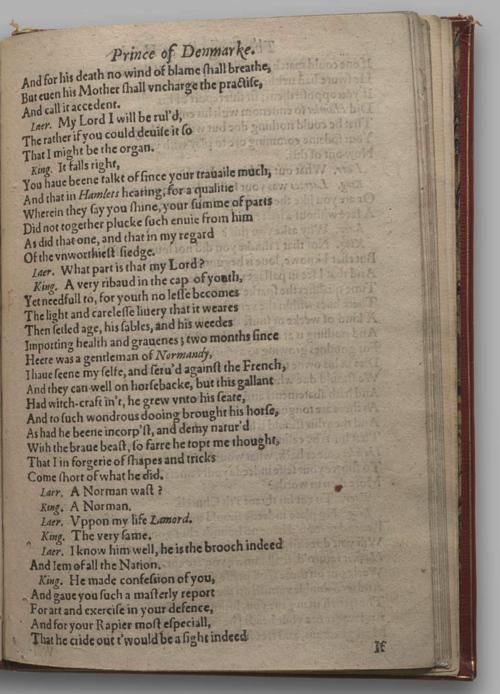 Prince of Denmarke.
And for his death no wind of blame ſhall breathe,
But euen his Mother ſhall vncharge the practiſe,
And call it accedent.
Laer. My Lord I will be rul'd,
The rather if you could deuiſe it ſo
That I might be the organ.
King. It falls right,
You haue beene talkt of ſince your trauaile much,
And that in Hamlets hearing, for a qualitie
Wherein they ſay you ſhine, your ſumme of parts
Did not together plucke ſuch enuie from him
As did that one, and that in my regard
Of the vnworthieſt ſiedge.
Laer. What part is that my Lord?
King. A very ribaud in the cap of youth,
Yet needfull to, for youth no leſſe becomes
The light and careleſſe liuery that it weares
Then ſetled age, his ſables, and his weedes
Importing health and grauenes; two months ſince
Heere was a gentleman of Normandy,
I haue ſeene my ſelfe, and ſeru'd againſt the French,
And they can well on horſebacke, but this gallant
Had witch-craft in't, he grew vnto his ſeate,
And to ſuch wondrous dooing brought his horſe,
As had he beene incorp'ſt, and demy natur'd
With the braue beaſt, ſo farre he topt me thought,
That I in forgerie of ſhapes and tricks
Come ſhort of what he did.
Laer. A Norman waſt?
King. A Norman.
Laer. Vppon my life Lamord.
King. The very ſame.
Laer. I know him well, he is the brooch indeed
And Iem of all the Nation.
King. He made confeſsion of you,
And gaue you ſuch a maſterly report
For art and exerciſe in your defence,
And for your Rapier moſt eſpeciall,
That he cride out t'would be a ſight indeed
If